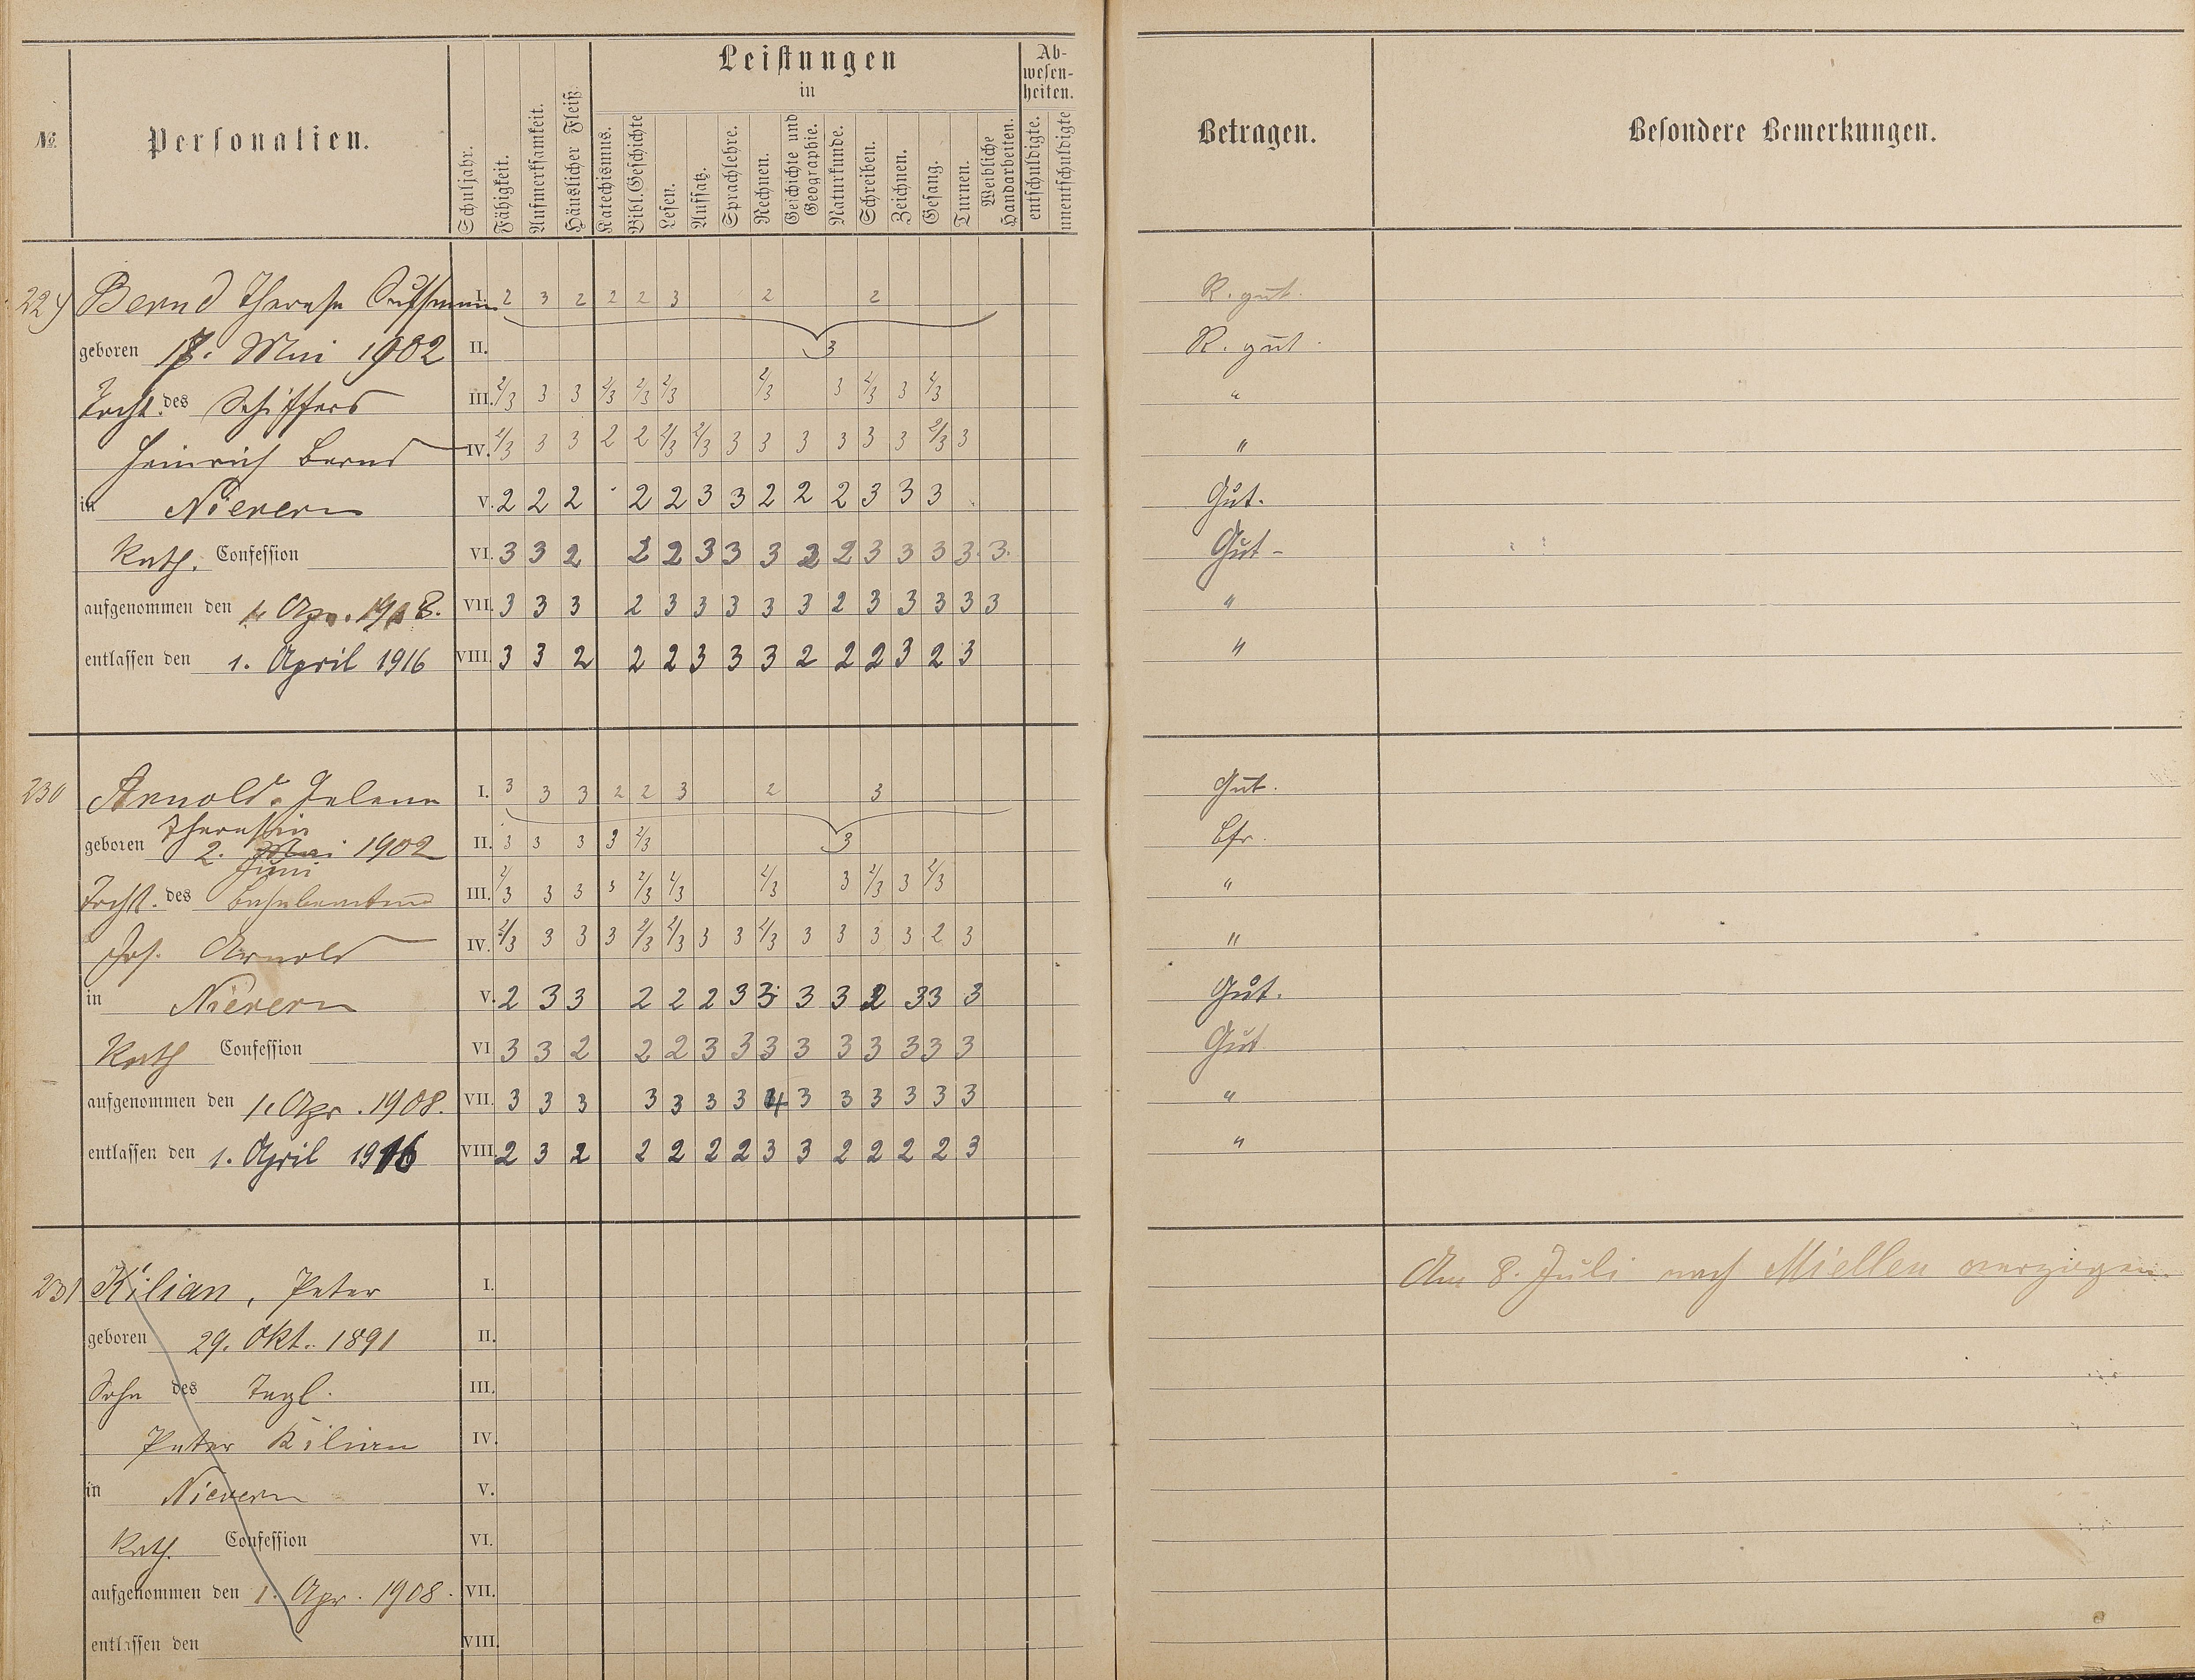 Leistungen
in
Ab-
wesen-
heiten.
№
Personalien.
Schuljahr.
Fähigkeit.
Aufmerksamkeit.
Häuslicher Fleiß.
Katechismus.
Bibl. Geschichte
Lesen.
Aufsatz.
Sprachlehre.
Rechnen.
Geschichte und
Geographie.
Naturkunde.
Schreiben.
Zeichnen.
Gesang.
Turnen.
Weibliche
Handarbeiten.
entschuldigte.
unentschuldigte
Betragen.
Besondere Bemerkungen.
Bernd Therese I. 2 3 2 2 2 3 2 2 R. gut.
geboren 17. Mai 1902 II. 3 R. gut.
Tocht. des Schiffers III. 2/3 3 3 2/3 2/3 2/3 2/3 3 2/3 3 2/3 "
Heinrich Bernd IV. 2/3 3 3 2 2 2/3 2/3 3 3 3 3 3 3 2/3 3 "
in Nievern V. 2 2 2 2 2 3 3 2 2 2 3 3 3 Gut.
Kath. Confession VI. 3 3 2 2 2 3 3 3 2 2 3 3 3 3. 3. Gut -
aufgenommen den 1. Apr. 1908. VII. 3 3 3 2 3 3 3 3 3 2 3 3 3 3 3 "
entlassen den 1. April 1916 VIII. 3 3 2 2 2 3 3 3 2 2 2 3 2 3 "
230 Arnold, Helena I. 3 3 3 2 2 3 2 3 Gut.
geboren 2. Mai 1902 II. 3 3 3 3 2/3 3 Bfr.
Juni
Tocht. des Bahnbeamten III. 2/3 3 3 3 2/3 2/3 2/3 3 2/3 3 2/3 "
Jos. Arnold IV. 2/3 3 3 3 2/3 2/3 3 3 2/3 3 3 3 3 2 3 "
in Nievern V. 2 3 3 2 2 2 3 3 3 3 2 3 3 3 Gut.
Kath Confession VI 3 3 2 2 2 3 3 3 3 3 3 3 3 3 Gut
aufgenommen den 1. Apr. 1908. VII. 3 3 3 3 3 3 3 4 3 3 3 3 3 3 "
entlassen den 1. April 1916 VIII. 2 3 2 2 2 2 2 3 3 2 2 2 2 3 "
231 Kilian, Peter I. Am 8. Juli nach Miellen verzogen.
geboren 29. Okt. 1891 II.
Sohn des Tagl. III.
Peter Kilian IV.
in Nievern V.
Kath. Confession VI.
aufgenommen den 1. Apr. 1908. VII.
entlassen den VIII.